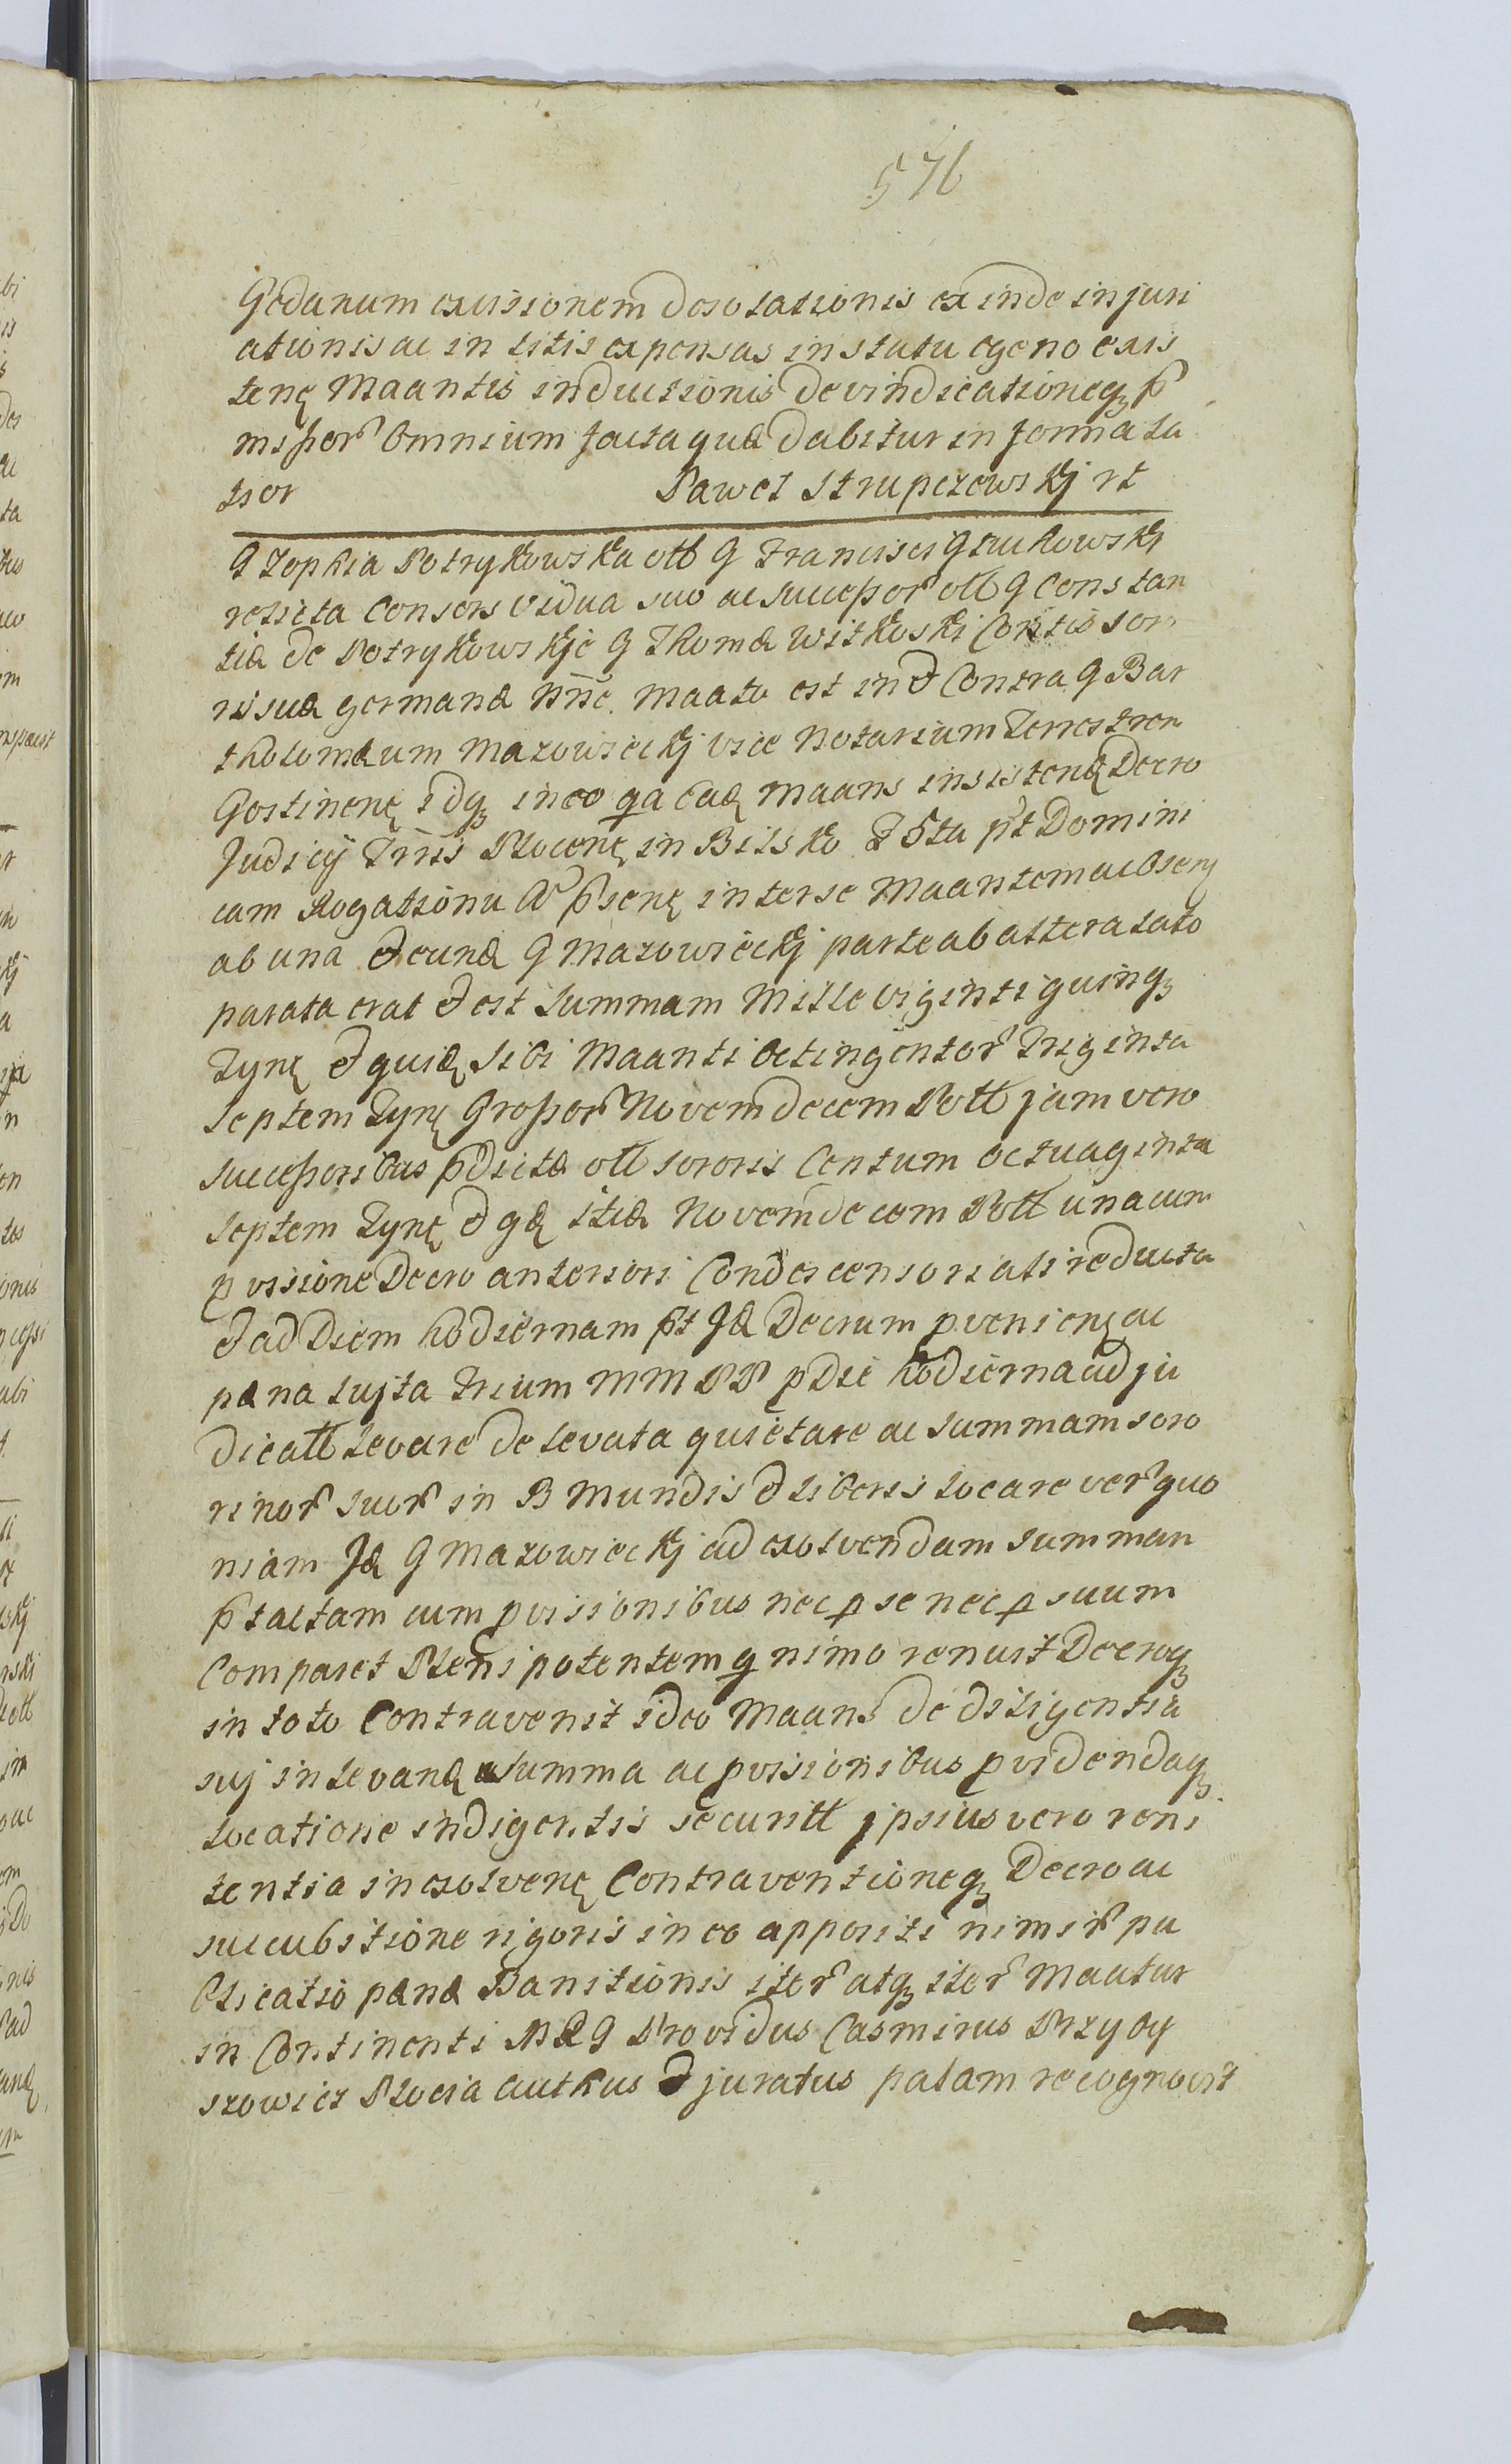 576
Gedanum excissionem desolationis exinde injuri
ationis ac in litis expensas in statu egeno exis
tenę Maantis inductionis devindicationeqꝫ p̃
mißor̃ omnium facta quæ dabitur in forma la
tior Paweł Strupczewskj rt
G Zophia Petrykowska olł G Francisci Gzuchowskj
relicta consors vidua suo ac successor̃ olł G Constan
tiæ de Petrykowskie G Thomæ Witkoski Contis soro
ris suæ germanæ nn̄e. Maato est in & Contra G Bar
tholomæum Mazowieckj vice Notarium Terrestren
Gostinenę idqꝫ in eo qa eadę Maans insistenđ Decro
Judicÿ Trīis Plocenę in Bilsko F 5ta p̃t Domini
cam Rogationu A̅ p̃senę inter se Maantem ac Oseny
ab una & eunđ G Mazowieckj parte ab altera lato
parata erat & est summam Mille viginti quinqꝫ
Tynę & quidę sibi Maanti octingentor̃ Triginta
septem Tynę Großor̃ Novemdecem Poll jam vero
successoribus p̃dictæ olł sororis Centum octuaginta
septem Tynę & gę itidę Novemdecem Poll una cum
ꝑvisione Decro anteriori Condescensoriali reducta
& ad Diem hodiernam p̃t Jđ Decrum ꝑvenienę ac
pæna lujta Trium MM PP ꝑ Die hodierna adju
dicatt levare de levata quietare ac summam soro
rinor̃ suor̃ in B Mundis & liberis locare ver̃ quo
niam Jđ G Mazowieckj ad exolvendam summam
p̃tactam cum ꝑvisionibus nec ꝑ se nec ꝑ suum
Comparet Plenipotentem qnimo renuit Decroqꝫ
in toto Contravenit ideo Maans de diligentia
suj in levanđ summa ac ꝑvisionibus ꝑvidendaqꝫ
locatione indigentis securitt ipsius vero reni
tentia in exolvenę Contraventioneqꝫ Decro ac
succubitione rigoris in eo appositi nimir̃ pu
blicatio pænæ Banitionis iter̃ atqꝫ iter̃ Maatur
in Continenti Providus Casmirus Przyby
szowicz Plocia authus & juratus palam recognovit